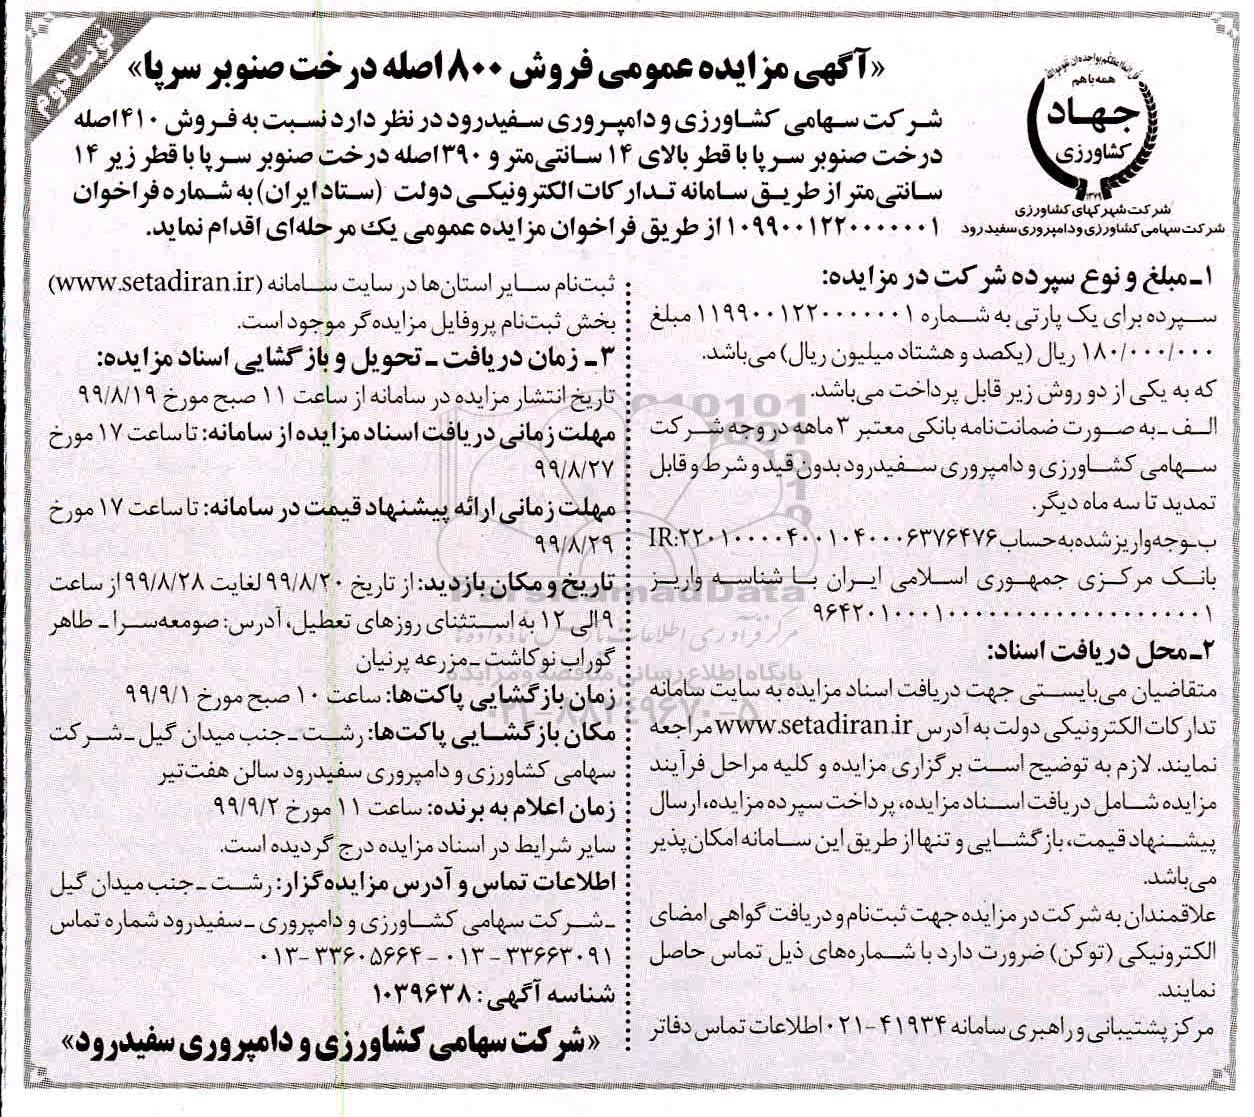 نوبت دوم
«آگهی مزایده عمومی فروش ۸۰۰ اصله درخت صنوبر سرپا»
همه با هم
جهاد
کشاورزی
۱۳۷۹
شرکت شهرکهای کشاورزی
شرکت سهامی کشاورزی و دامپروری سفیدرود
شرکت سهامی کشاورزی و دامپروری سفیدرود در نظر دارد نسبت به فروش ۴۱۰ اصله
درخت صنوبر سرپا با قطر بالای ۱۴ سانتی‌متر و ۳۹۰ اصله درخت صنوبر سرپا با قطر زیر ۱۴
سانتی‌متر از طریق سامانه تدارکات الکترونیکی دولت (ستاد ایران) به شماره فراخوان
۱۰۹۹۰۰۱۲۲۰۰۰۰۰۰۱ از طریق فراخوان مزایده عمومی یک مرحله‌ای اقدام نماید.
۱ـ مبلغ و نوع سپرده شرکت در مزایده:
سپرده برای یک پارتی به شماره ۱۱۹۹۰۰۱۲۲۰۰۰۰۰۰۱ مبلغ
۱۸۰/۰۰۰/۰۰۰ ریال (یکصد و هشتاد میلیون ریال) می‌باشد.
که به یکی از دو روش زیر قابل پرداخت می‌باشد.
الف ـ به صورت ضمانت‌نامه بانکی معتبر ۳ ماهه در وجه شرکت
سهامی کشاورزی و دامپروری سفیدرود بدون قید و شرط و قابل
تمدید تا سه ماه دیگر.
ب ـ وجه واریز شده به حساب IR:۲۲۰۱۰۰۰۰۴۰۰۱۰۴۰۰۰۶۳۷۶۴۷۶
بانک مرکزی جمهوری اسلامی ایران با شناسه واریز
۲ـ محل دریافت اسناد:
متقاضیان می‌بایستی جهت دریافت اسناد مزایده به سایت سامانه
تدارکات الکترونیکی دولت به آدرس www.setadiran.ir مراجعه
نمایند. لازم به توضیح است برگزاری مزایده و کلیه مراحل فرآیند
مزایده شامل دریافت اسناد مزایده، پرداخت سپرده مزایده، ارسال
پیشنهاد قیمت، بازگشایی و تنها از طریق این سامانه امکان‌پذیر
می‌باشد.
علاقمندان به شرکت در مزایده جهت ثبت‌نام و دریافت گواهی امضای
الکترونیکی (توکن) ضرورت دارد با شماره‌های ذیل تماس حاصل
نمایند.
مرکز پشتیبانی و راهبری سامانه ۴۱۹۳۴-۰۲۱ اطلاعات تماس دفاتر
ثبت‌نام سایر استان‌ها در سایت سامانه (www.setadiran.ir)
بخش ثبت‌نام پروفایل مزایده‌گر موجود است.
۳ ـ زمان دریافت ـ تحویل و بازگشایی اسناد مزایده:
تاریخ انتشار مزایده در سامانه از ساعت ۱۱ صبح مورخ ۹۹/۸/۱۹
مهلت زمانی دریافت اسناد مزایده از سامانه: تا ساعت ۱۷ مورخ
۹۹/۸/۲۷
مهلت زمانی ارائه پیشنهاد قیمت در سامانه: تا ساعت ۱۷ مورخ
۹۹/۸/۲۹
تاریخ و مکان بازدید: از تاریخ ۹۹/۸/۲۰ لغایت ۹۹/۸/۲۸ از ساعت
۹ الی ۱۲ به استثنای روزهای تعطیل، آدرس: صومعه‌سرا ـ طاهر
گوراب نوکاشت ـ مزرعه پرنیان
زمان بازگشایی پاکت‌ها: ساعت ۱۰ صبح مورخ ۹۹/۹/۱
مکان بازگشایی پاکت‌ها: رشت ـ جنب میدان گیل ـ شرکت
سهامی کشاورزی و دامپروری سفیدرود سالن هفت‌تیر
زمان اعلام به برنده: ساعت ۱۱ مورخ ۹۹/۹/۲
سایر شرایط در اسناد مزایده درج گردیده است.
اطلاعات تماس و آدرس مزایده‌گزار: رشت ـ جنب میدان گیل
ـ شرکت سهامی کشاورزی و دامپروری ـ سفیدرود شماره تماس
۳۳۶۶۳۰۹۱-۰۱۳ - ۳۳۶۰۵۶۶۴-۰۱۳
شناسه آگهی: ۱۰۳۹۶۳۸
«شرکت سهامی کشاورزی و دامپروری سفیدرود»
ParsNamadData
پایگاه اطلاع رسانی مناقصه و مزایده
۰۲۱-۸۸۳۴۹۶۷۰-۵